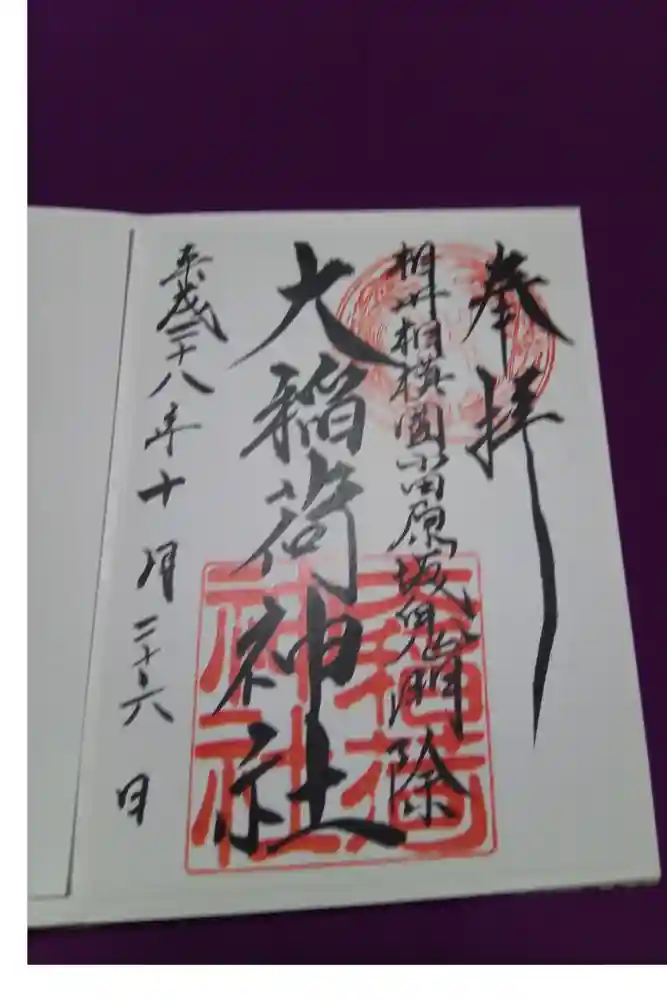 奉拝
相州相模國小田原城鬼門除
大稲荷神社
平成二十八年十月二十六日
大稲荷
神社